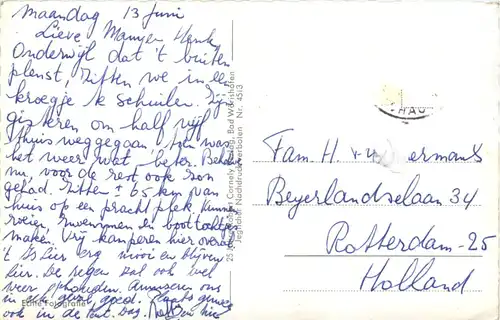 maandag 13 juni
Lieve Mamy en Henk
Onderwijl dat 't buiten
plenst, zitten we in een
kroegje te schuilen. Zijn
gisteren om half vijf
thuis weggegaan, toen was
het weer wat beter. Behalve
nu, voor de rest ook zon
gehad. Zitten ± 65 km van
huis op een pracht plek, kunnen
roeien, zwemmen en boottochtjes
maken. Wij kamperen hier overal
't is hier erg mooi en blijven
hier. De regen zal ook wel
weer ophouden. Amuseren ons
in elk geval goed.
ook in de
Echte Fotografie
Cornely Verlag, Bad Wörishofen
Nachdruck verboten Nr. 4513
Fam. H. ermans
Beyerlandselaan 34
Rotterdam-25
Holland